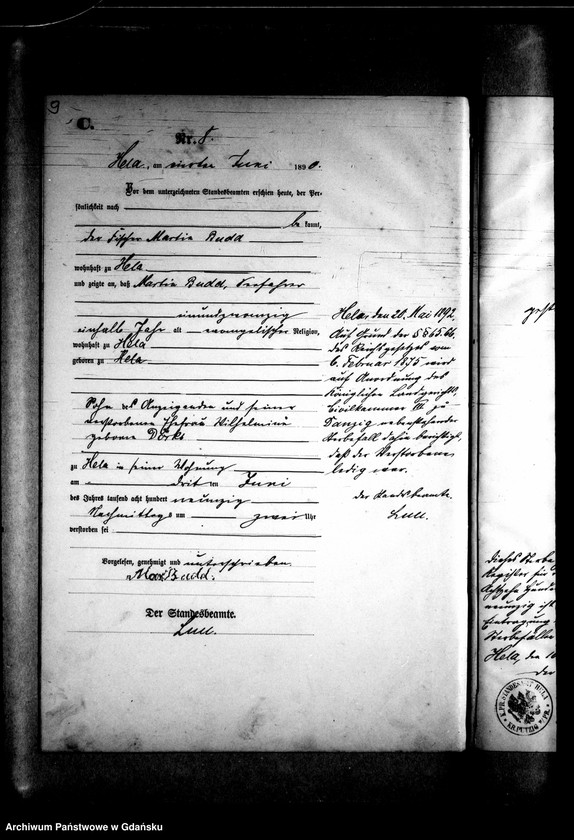 9
C.
Nr. 8.
Hela, am vierten Juni 1890.
Vor dem unterzeichneten Standesbeamten erschien heute, der Per-
sönlichkeit nach
bekannt,
der Fischer Martin Budd
wohnhaft zu Hela
und zeigte an, daß Martin Budd, Seefahrer
einundzwanzig
einhalb Jahr alt evangelischer Religion,
wohnhaft zu Hela
geboren zu Hela
Sohn des Anzeigenden und seiner
verstorbenen Ehefrau Wilhelmine
geborene
zu Hela in seiner Wohnung
am dritten Juni
des Jahres tausend acht hundert neunzig
Nachmittags um zwei Uhr
verstorben sei
Vorgelesen, genehmigt und unterschrieben.
Mart Budd.
Der Standesbeamte.
Hela, den 20. Mai 1892.
Auf Grund der §§ 65. 66.
des Reichsgesetzes vom
6. Februar 1875 wird
auf Anordnung des
Königlichen Landgerichts,
Civilkammer III zu
Danzig nebenstehender
Sterbefall dahin berichtigt,
daß der Verstorbene
ledig war.
der Standesbeamte.
dieses Sterbe
Register für
Achtzehn hunde
neunzig ist
Eintragung
Sterbefälle
Hela, den
der
K. PR. STANDESAMT HELA KR. PUTZIG
Archiwum Państwowe w Gdańsku